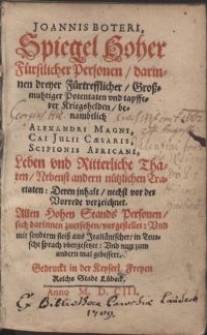 JOANNIS BOTERI,
Spiegel Hoher
Fürstlicher Personen / darin-
nen dreyer Fürtrefflicher / Groß-
muhtiger Potentaten vnd tapffe-
rer Kriegshelden / be-
nambtlich
ALEXANDRI MAGNI,
CAII JULII CÆSARIS,
SCIPIONIS AFRICANI,
Leben vnd Ritterliche Tha-
ten / Nebenst andern nützlichen Tra-
ctaten: Deren inhalt / nechst vor der
Vorrede verzeichnet.
Allen Hohen Stands Personen /
sich darinnen zuersehen / vorgestellet: Vnd
mit sonderm fleiß aus Italiänischer / in Teut-
sche sprach vbergesetzt: Vnd nun zum
andern mal gebessert.
Gedruckt in der Keyserl. Freyen
Reichs Stadt Lübeck.
Anno M. D. CIII.
Ex Bibliotheca
1709.